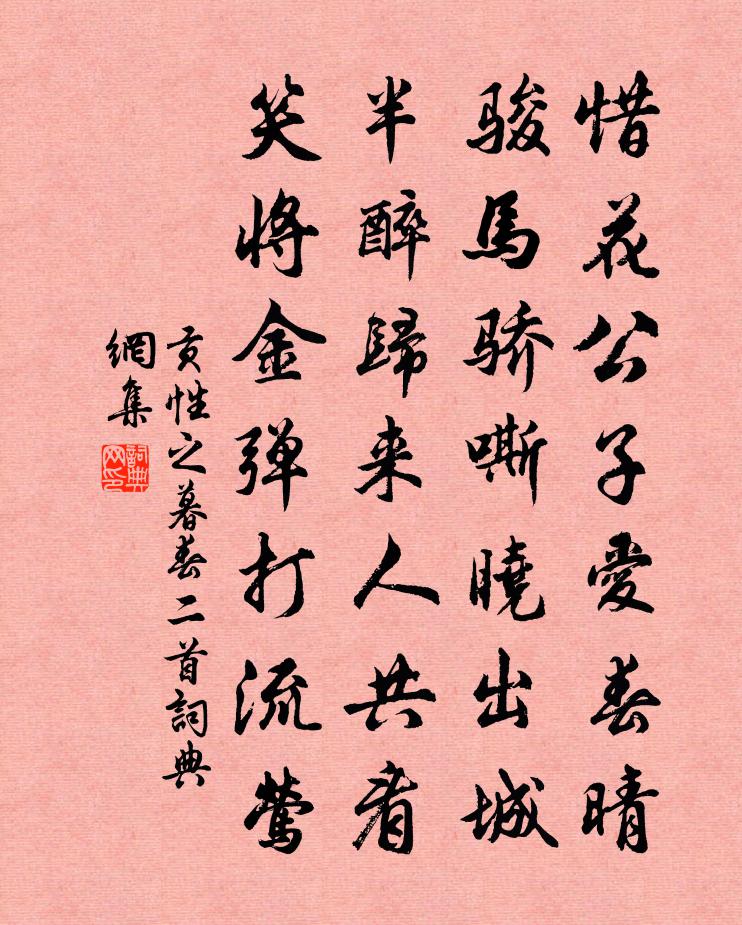 惜花公子愛春晴
骏馬骄嘶曉出城
半醉歸来人共看
笑将金弹打流莺
贡性之暮春二首詞典
網集
詞典
网印